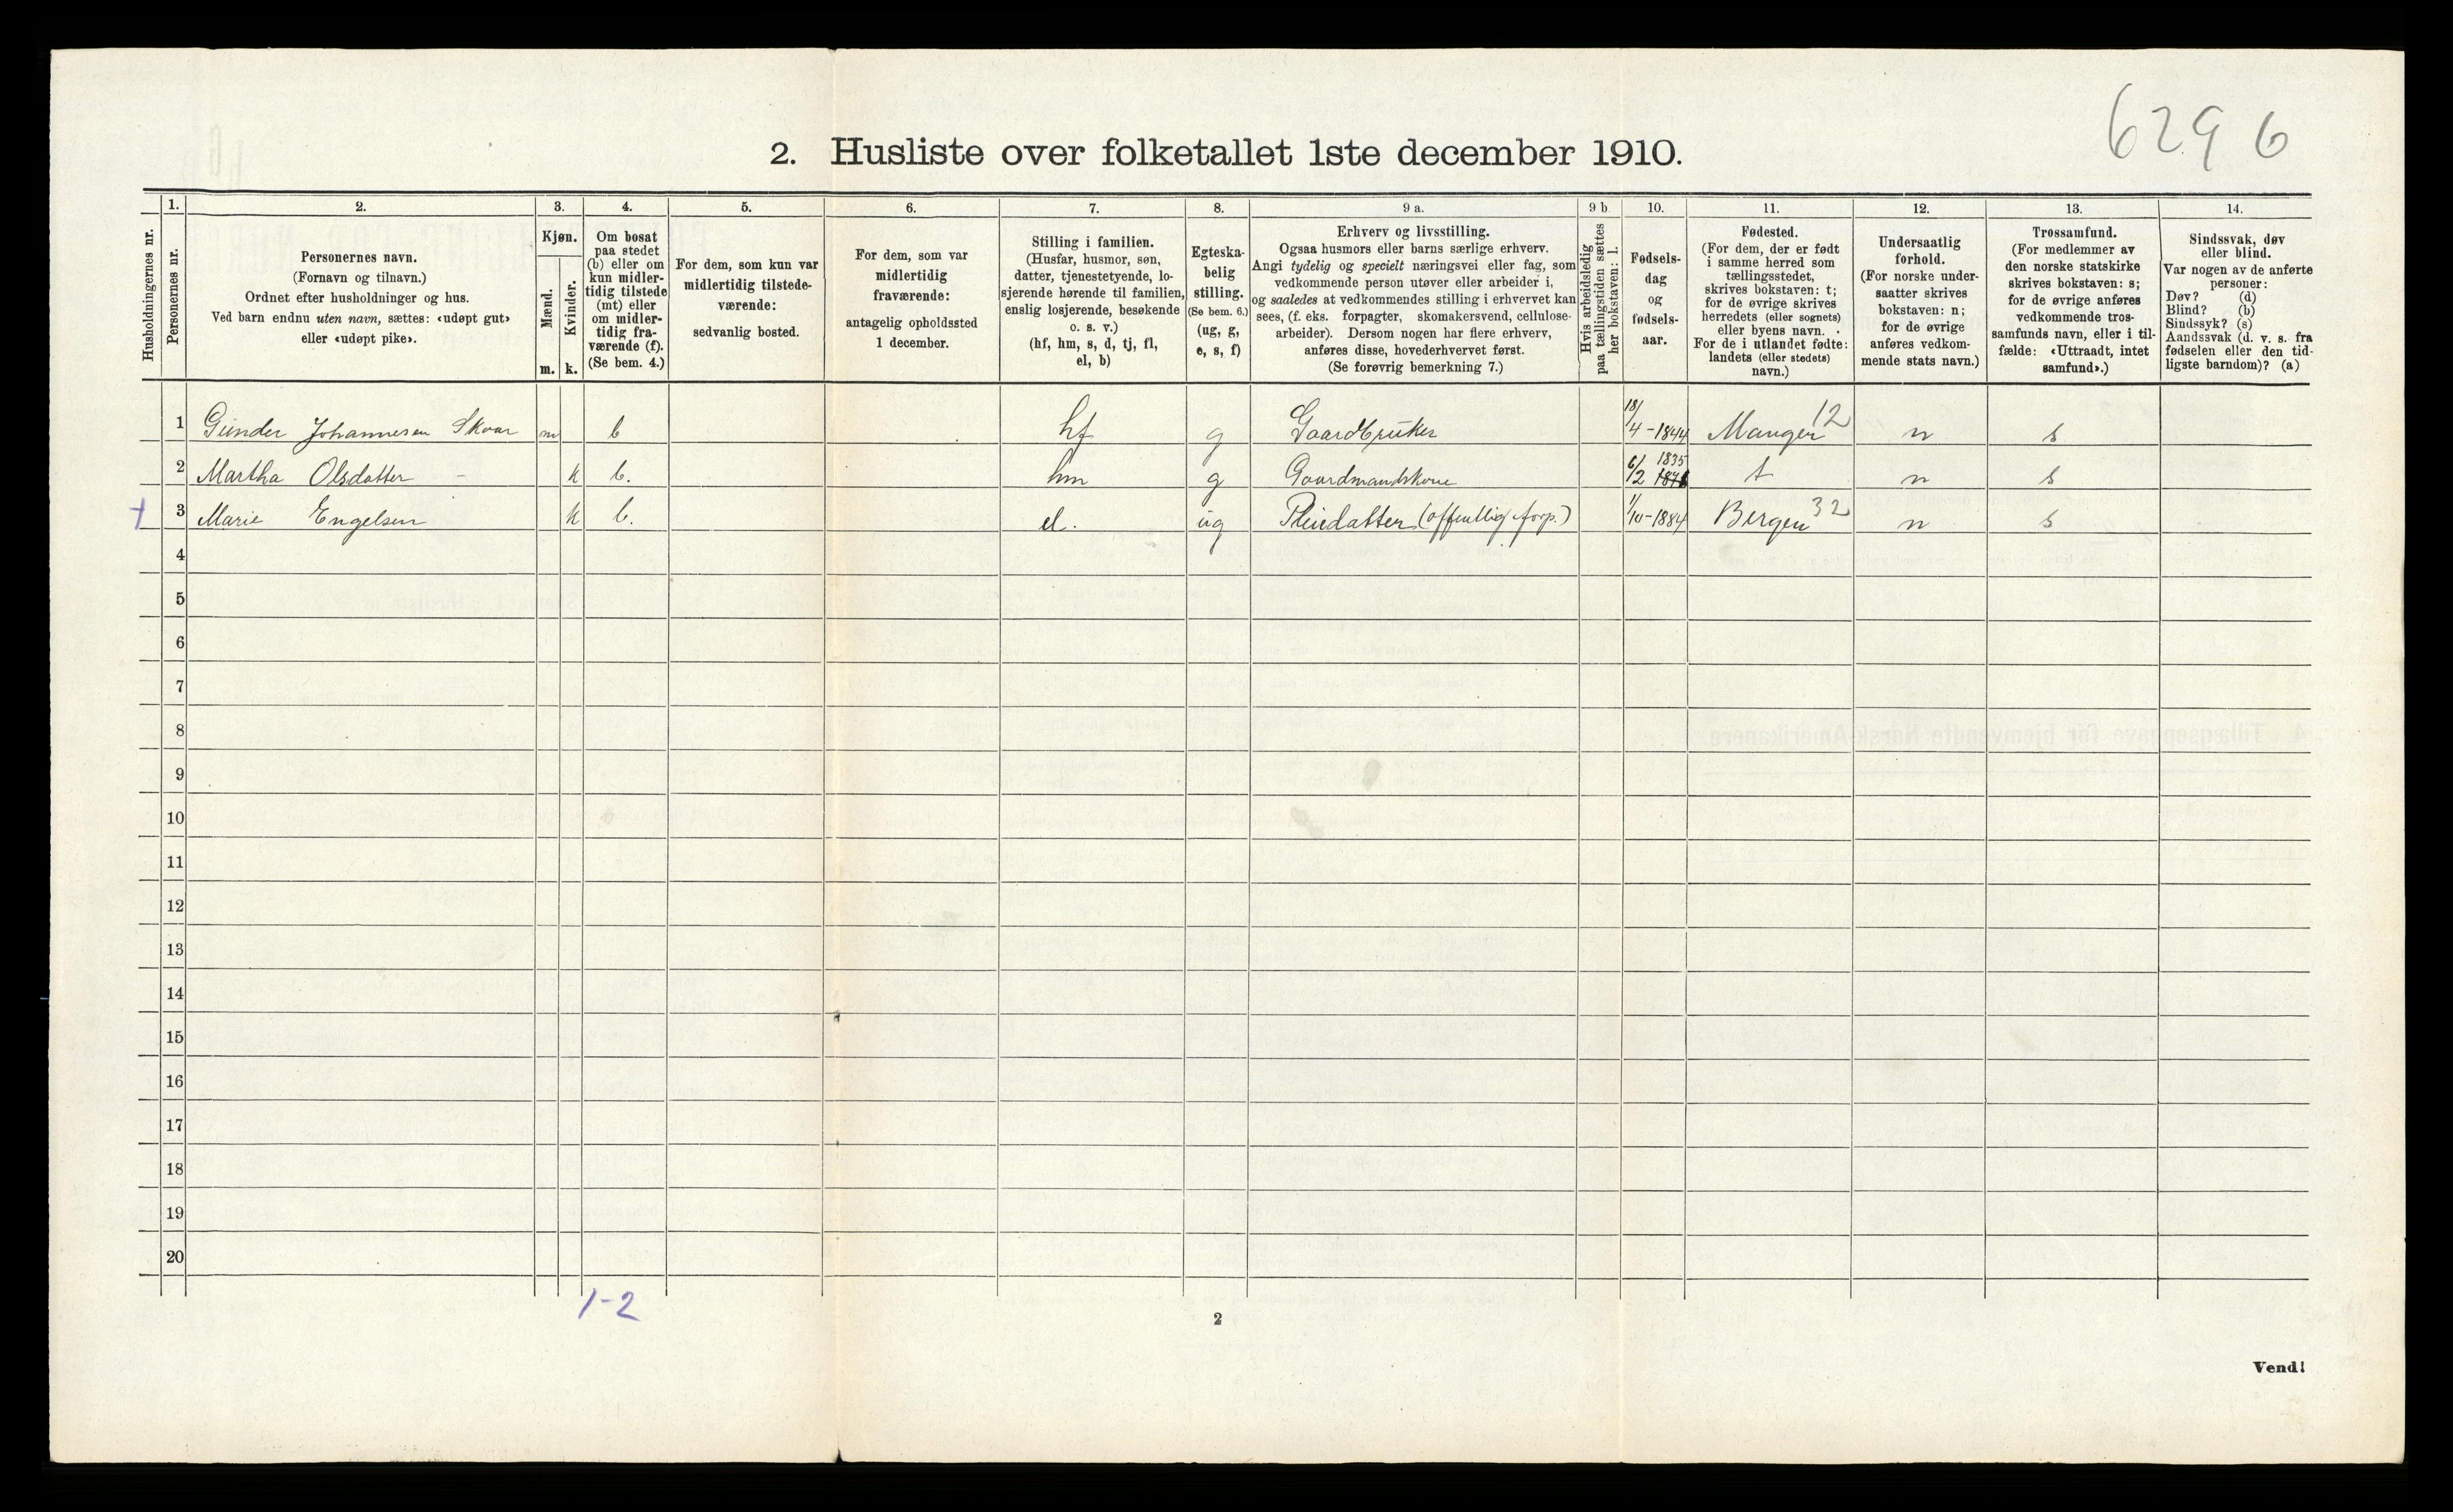 6296
2. Husliste over folketallet 1ste december 1910.
Husholdningernes nr.
1.
Personernes nr.
2.
Personernes navn.
(Fornavn og tilnavn.)
Ordnet efter husholdninger og hus.
Ved barn endnu uten navn, sættes: «udøpt gut»
eller «udøpt pike».
3.
Kjøn.
Mænd.
Kvinder.
m. k.
4.
Om bosat
paa stedet
(b) eller om
kun midler-
tidig tilstede
(mt) eller
om midler-
tidig fra-
værende (f).
(Se bem. 4.)
5.
For dem, som kun var
midlertidig tilstede-
værende:
sedvanlig bosted.
6.
For dem, som var
midlertidig
fraværende:
antagelig opholdssted
1 december.
7.
Stilling i familien.
(Husfar, husmor, søn,
datter, tjenestetyende, lo-
sjerende hørende til familien,
enslig losjerende, besøkende
o. s. v.)
(hf, hm, s, d, tj, fl,
el, b)
8.
Egteska-
belig
stilling.
(Se bem. 6.)
(ug, g,
e, s, f)
9 a.
Erhverv og livsstilling.
Ogsaa husmors eller barns særlige erhverv.
Angi tydelig og specielt næringsvei eller fag, som
vedkommende person utøver eller arbeider i,
og saaledes at vedkommendes stilling i erhvervet kan
sees, (f. eks. forpagter, skomakersvend, cellulose-
arbeider). Dersom nogen har flere erhverv,
anføres disse, hovederhvervet først.
(Se forøvrig bemerkning 7.)
9 b
Hvis arbeidsledig
paa tællingstiden sættes
her bokstaven: l.
10.
Fødsels-
dag
og
fødsels-
aar.
11.
Fødested.
(For dem, der er født
i samme herred som
tællingsstedet,
skrives bokstaven: t;
for de øvrige skrives
herredets (eller sognets)
eller byens navn.
For de i utlandet fødte:
landets (eller stedets)
navn.)
12.
Undersaatlig
forhold.
(For norske under-
saatter skrives
bokstaven: n;
for de øvrige
anføres vedkom-
mende stats navn.)
13.
Trossamfund.
(For medlemmer av
den norske statskirke
skrives bokstaven: s;
for de øvrige anføres
vedkommende tros-
samfunds navn, eller i til-
fælde: «Uttraadt, intet
samfund».)
14.
Sindssvak, døv
eller blind.
Var nogen av de anførte
personer:
Døv? (d)
Blind? (b)
Sindssyk? (s)
Aandssvak (d. v. s. fra
fødselen eller den tid-
ligste barndom)? (a)
1 Gunder Johannesen Skaar m b hf g Gaardbruker 18/4-1844 Manger 12 n s
2 Martha Olsdatter - k b. hm g Gaardmandskone 6/2 1835 t n s
+ 3 Marie Engelsen k b. el. ug Pleiedatter (offentlig forp.) 1/10-1884 Bergen 32 n s
4
5
6
7
8
9
10
11
12
13
14
15
16
17
18
19
20
1-2
2
Vend!